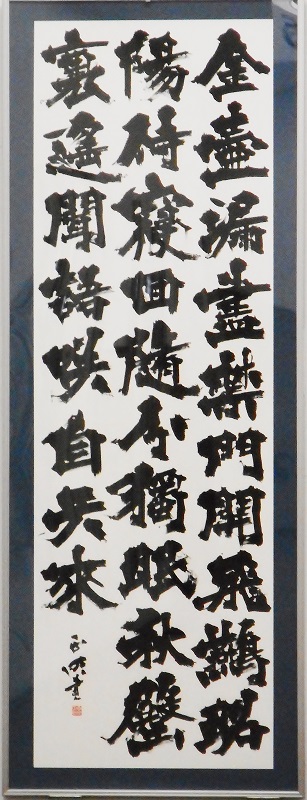 金壺漏盡禁門開飛鷰昭
陽侍寢回隨分獨眠秋殿
裏遙聞語咲自天來